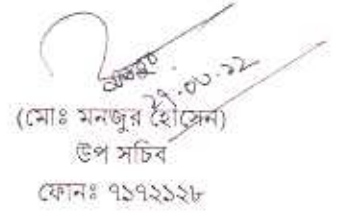 ২৭.০৩.১২
(মোঃ মনজুর হোসেন)
উপ সচিব
ফোনঃ ৭১৭২১২৮